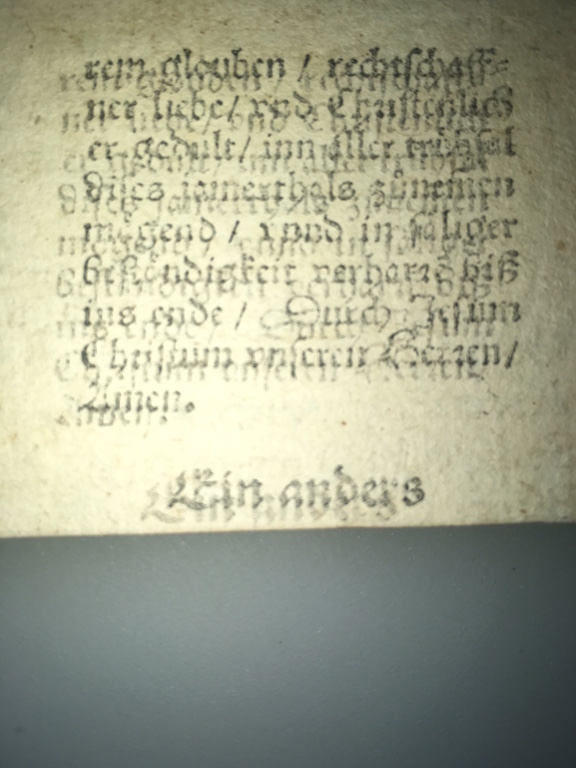 rem glouben / rechtschaff⸗
ner liebe / vnd Christenlich
er gedult / inn aller trůbsal
dises jamerthals zůnemen
mögend / vnnd in säliger
beständigkeit verharrẽ biß
ins ende / Durch Jesum
Christum vnseren Herren /
Amen.
Ein anders